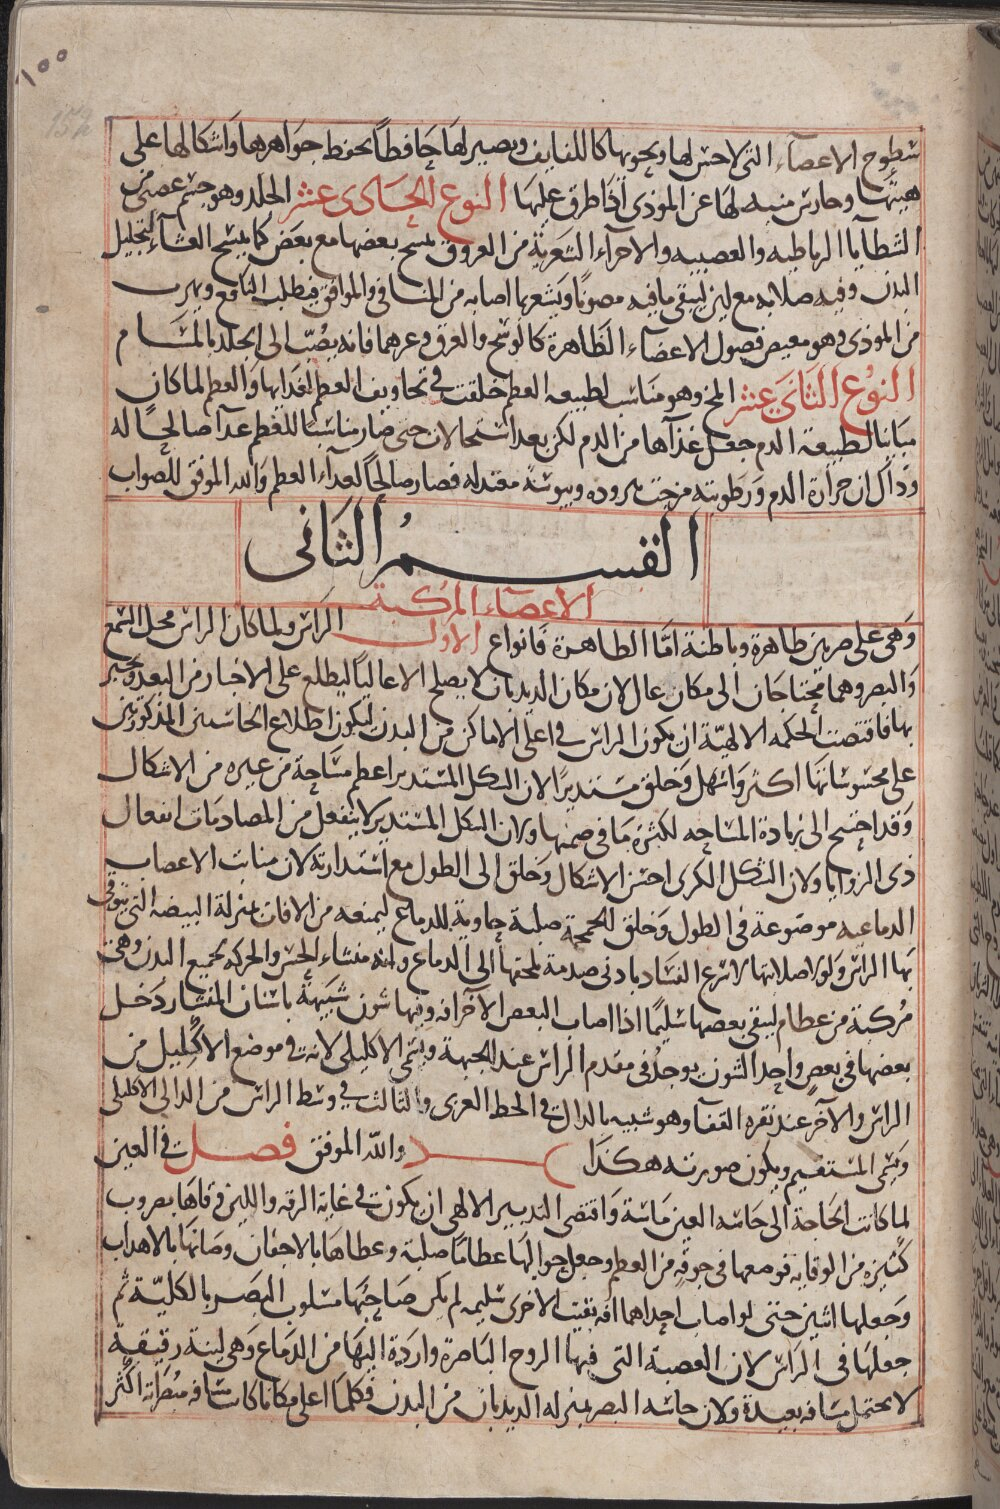 ١٠٠
152
سطوح الاعضاء التى لاحس لها ويحويها كاللفايف ويصير لها حافظاً يحفظ جواهرها واشكالها على
هيئتها وحارس منبه لها عن الموذى اذا طرق عليها النوع الحادى عشر الجلد وهو جسم عصبى من
الشظايا الرباطيه والعصبيه والاجزاء الشعرية من العروق نسج بعضها مع بعض كما ينسج الغشاء لتجليل
البدن وفيه صلابه مع لين ليبقى ما فيه مصونا ويشعر بما اصابه من المنافى والموافق فيطلب النافع ويهرب
من الموذى وهو مغيض فصول الاعضاء الظاهرة كالوسخ والعرق وغيرهما فانه يصب الى الجلد بالمسام
النوع الثانى عشر المخ وهو مناسب لطبيعه العظم خلقت فى تجاويف العظم لغذايها والعظم لما كان
مباينا لطبيعة الدم جعل غذاها من الدم لكن بعد استحالات حتى صار مناسبا للعظم غدآ صالحاً له
وذاك ان حرارة الدم ورطوبته مزجت ببروده ويبوسة معتدله فصار صالحاً لغداء العظم والله الموفق للصواب
القسم الثانى
الاعضاء المركبة
وهى على ضربين ظاهرة وباطنة اما الظاهرة فانواع الاول الراس ولما كان الراس محل السمع
والبصر وهما محتاجان الى مكان عال لان مكان الديدبان لا يصلح الا عالياً ليطلع على الاخبار من البعد ويخبر
بها فاقتضت الحكمه الالهية ان يكون الراس فى اعلى الاماكن من البدن ليكون اطلاع الحاستين المذكورتين
على محسوساتها اكثر واسهل وخلق مستديرا لان الشكل المستدير اعظم مساحة من غيره من الاشكال
وقد احتيج الى زيادة المساحه لكثرة ما فى ضمنها ولان الشكل المستدير لا ينفعل من المصادمات انفعال
ذى الزوايا ولان الشكل الكرى احسن الاشكال وخلق الى الطول مع استدارته لان منابت الاعصاب
الدماغيه موضوعة فى الطول وخلق الجمجمة صلبة حاوية للدماغ ليمنعه من الافات بمنزلة البيضه التى يتوقى
بها الراس ولولا صلابتها لاسرع الفساد بادنى صدمة تلحقها الى الدماغ وانه منشاء الحس والحركه لجميع البدن وهى
مركبة من عظام ليبقى بعضها سليماً اذا اصاب البعض الآخر افه وفيها شون شبيهة باسنان المنشار دخل
بعضها فى بعض واحد الشون يوجد فى مقدم الراس عند الجبهة ويسمى الاكليلى لانه فى موضع الاكليل من
الراس والآخر عند نقره القفا وهو شبيه بالدال فى الخط العربى والثالث فى وسط الراس من الدالى الى الاكليلى
ويسمى المستقيم ويكون صورته هكذا والله الموفق فصل فى العين
لما كانت الحاجة الى حاسه العين ماسة واقتضى التدبير الالهى ان يكون فى غايه الرقه واللين فوقاها بضروب
كثيرة من الوقايه فوضعها فى جوفه من العظم وجعل حواليها عظاماً صلبة وغطاها بالاجفان وصانها بالاهداب
وجعلها اثنين حتى لو اصاب احداهما افه بقيت الاخرى سليمه لم يكن صاحبها مسلوب البصر بالكلية ثم
جعلها فى الراس لان العصبة التى فيها الروح الباصرة واردة اليها من الدماغ وهى لينة رقيقة
لا يحتمل مسافه بعيدة ولان حاسه البصر بمنزله الديدبان من البدن فكلما اعلى مكانا كانت مسافه مبصراته اكثر